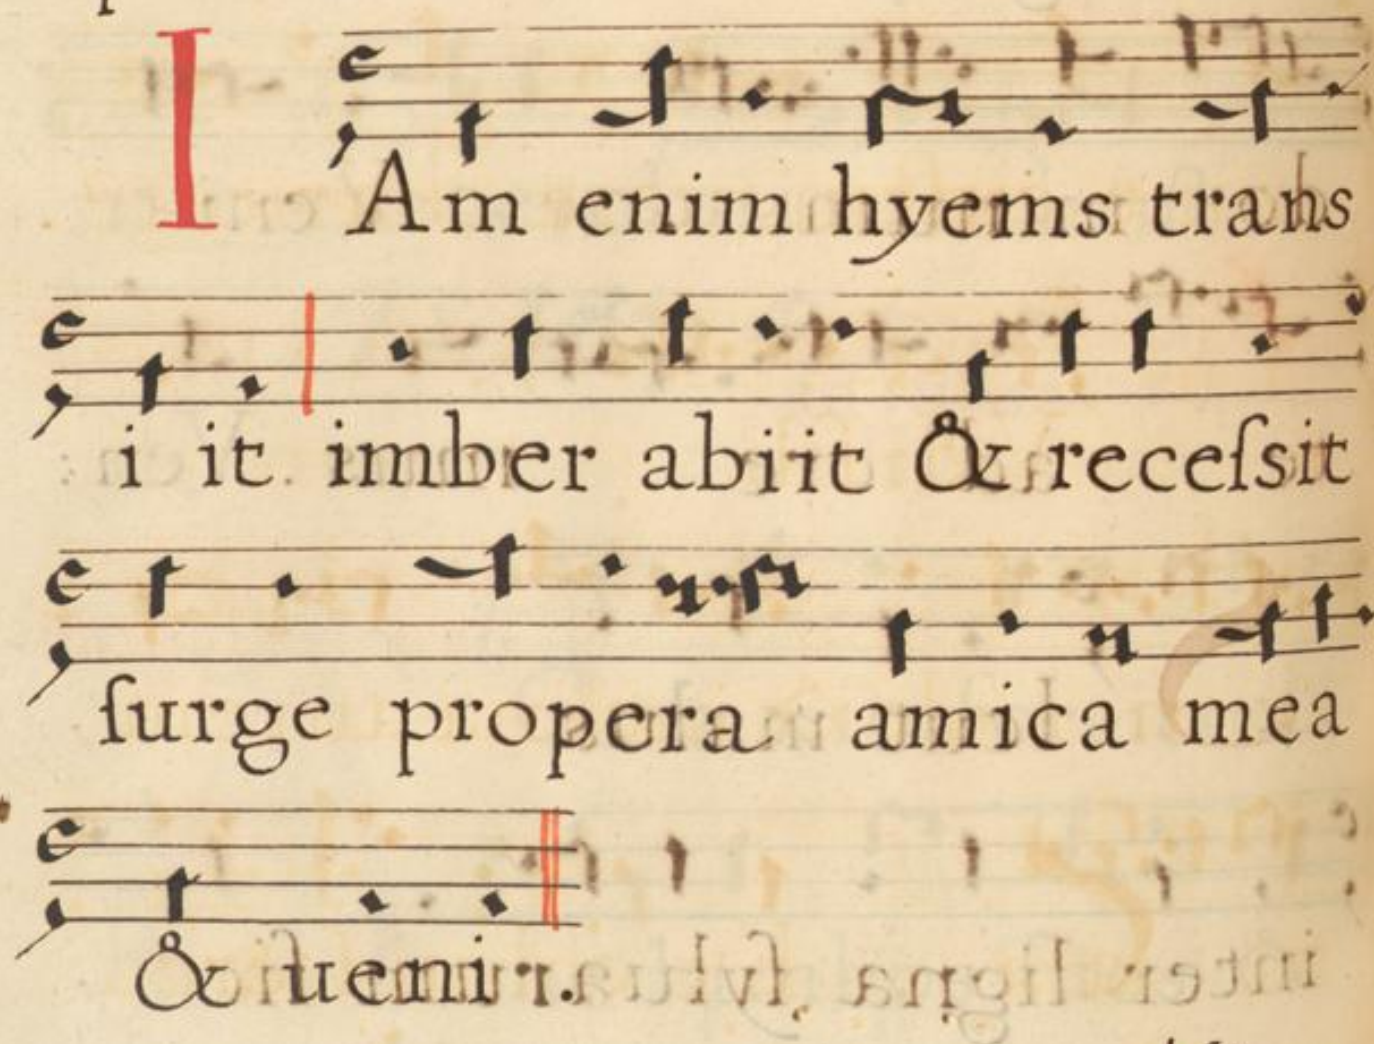 IAm enim hyems trans
i it imber abiit & receſsit
ſurge propera amica mea
& ueni.